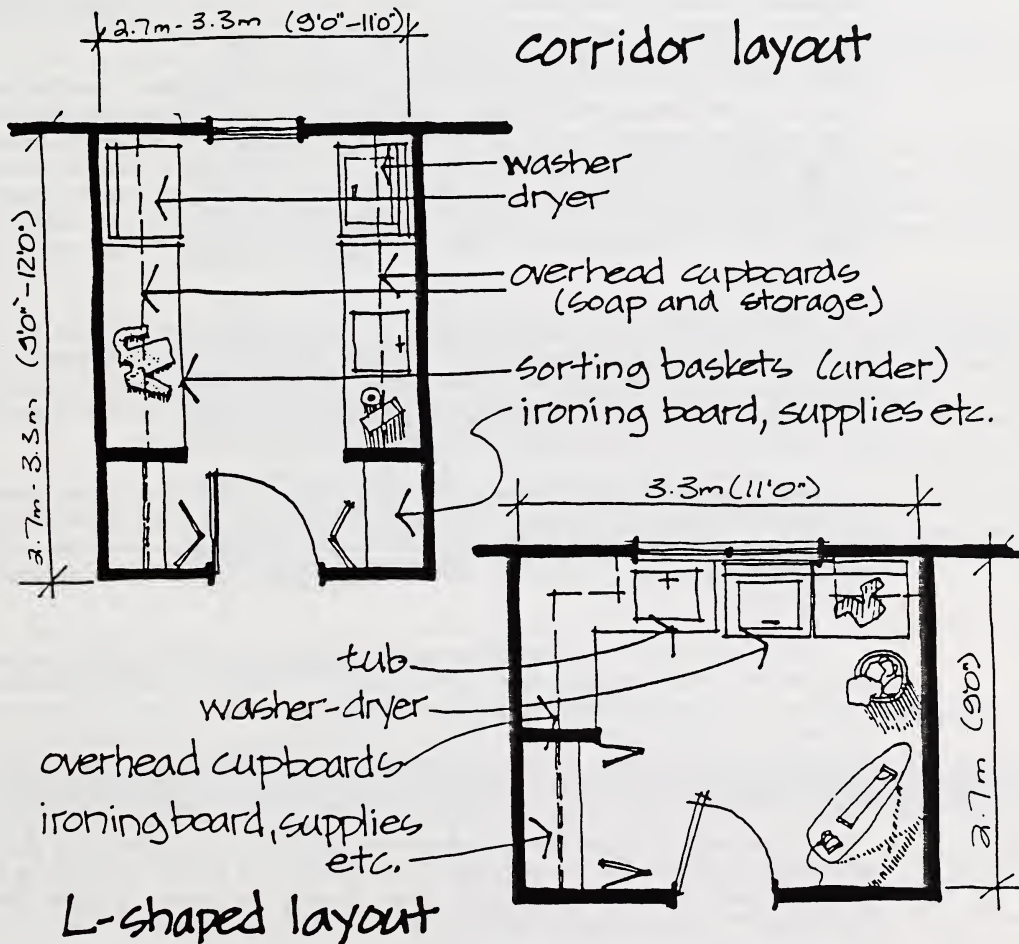 2.7m - 3.3m (9'0"-11'0)
corridor layout
washer
dryer
2.7m - 3.3m (9'0"-12'0")
overhead cupboards
(soap and storage)
sorting baskets (under)
ironing board, supplies etc.
3.3m (11'0")
tub
washer-dryer
overhead cupboards
ironing board, supplies
etc.
2.7m (9'0")
L-shaped layout